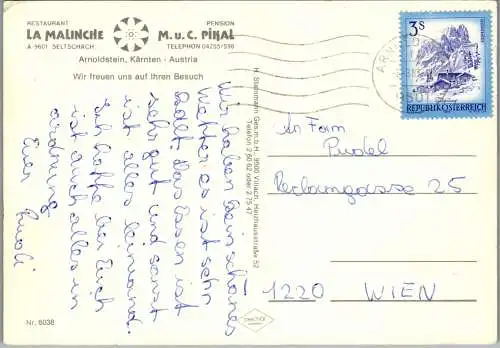 RESTAURANT PENSION
LA MALINCHE M. u. C. PIKAL
A-9601 SELTSCHACH TELEPHON 04255-598
Arnoldstein, Kärnten - Austria
Wir freuen uns auf Ihren Besuch
Wir haben kein schönes
Wetter es ist sehr
kalt. das Essen ist
sehr gut und sonst
ist alles leinwand.
Ich hoffe bei Euch
ist auch alles in
Ordnung
Euer
Nr. 6038
H. Stammann Ges.m.b.H., 9500 Villach, Heizhausstraße 52
Telefon 2 60 62 oder 2 75 47
3 S
REPUBLIK ÖSTERREICH
An Fam
Pudel
25
1220 WIEN